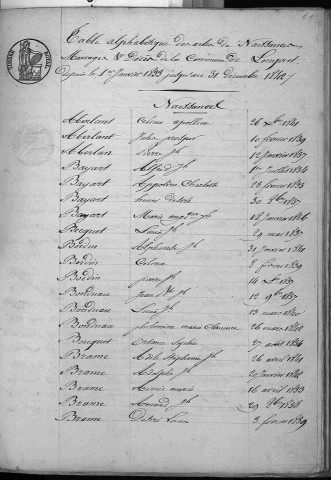 Table alphabétique des actes de Naissances
Mariages & Décès de la Commune de Lompret
Depuis le 1er Janvier 1833 jusqu'au 31 décembre 1842
Naissances
Aberlant Césime apolline 26 Xbre 1840
Aberlant Jules prosper 10 février 1839
Aberlan Pierre Jh 12 janvier 1837
Bayart Alfred Jh 1834
Bayart Appoline Charlotte 23 février 1833
Bayart henri 30 1837
Bayart Marie 18 Janvier 1840
Becquet Louis Jh 29 mai 1837
Bordin Alphonse Jh 31 Janvier 1841
Bordin Celina 8 février 1839
Bordin pierre Jh 14 1837
Bordeau Jean Bte Jh 12 9bre 1837
Bordeau Louis Jh 13 mars 1840
Bordeau philomène marie Clémence 26 mars 1842
Bocquet Octavie Sophie 27 août 1836
Brame Adèle Stéphanie Jh 26 avril 1841
Brame Adolphe Jh 20 janvier 1842
Brame Aimée marie 16 avril 1833
Brame Amand Jh 29 1836
Brame Désiré Louis 3 février 1839